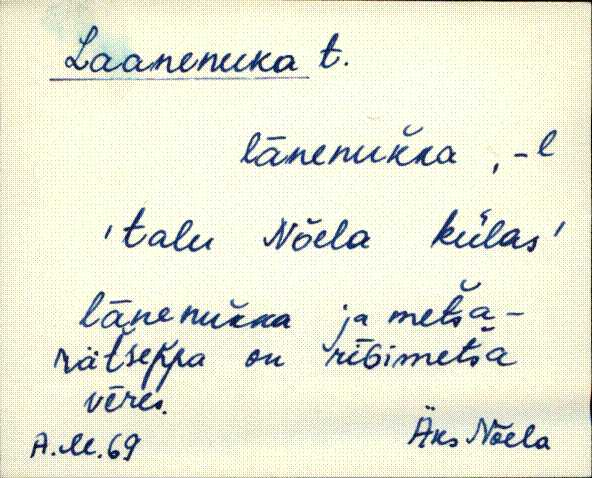 Laanenuka t.
lānenuk̆ka, -l
'talu Nõela külas'
lānenuk̆ka ja met̆sa-
rätseppa on rībimet̆sa
vēres.
A.M. 69
Äks Nõela